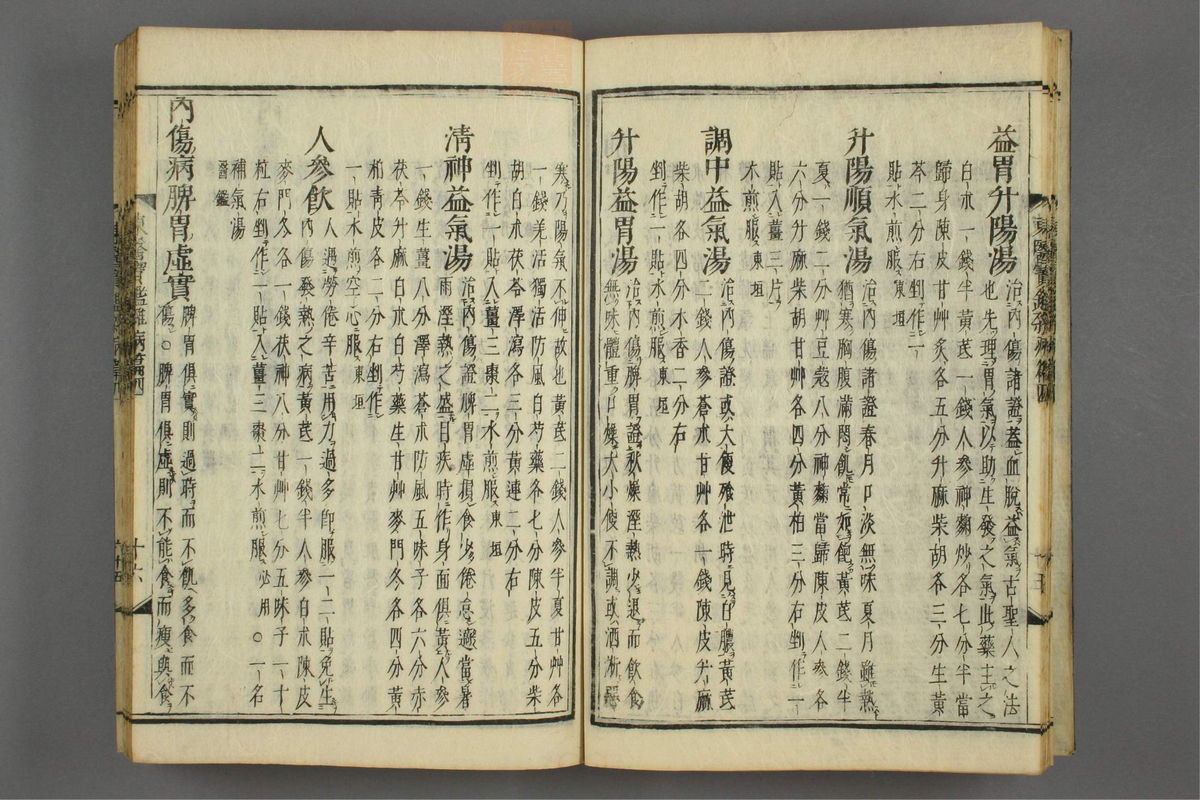 益胃升陽湯 治內傷諸證蓋血脫益氣古聖人之法
也先理胃氣以助生發之氣此藥主之
白朮一錢半黃芪一錢人參神麴炒各七分半當
歸身陳皮甘艸炙各五分升麻柴胡各三分生黃
芩二分右剉作一
貼水煎服 東垣
升陽順氣湯 治內傷諸證春月口淡無味夏月雖熱
猶寒胸腹滿悶飢常如飽黃芪二錢半
夏一錢二分艸豆蔲八分神麴當歸陳皮人參各
六分升麻柴胡甘艸各四分黃柏三分右剉作一
貼入薑三片
水煎服 東垣
調中益氣湯 治內傷證或大便飱泄時見白膿黃芪
二錢人參蒼朮甘艸各一錢陳皮升麻
柴胡各四分木香二分右
剉作一貼水煎服 東垣
升陽益胃湯 治內傷脾胃證秋燥溼熱少退而飲食
無味體重口燥大小便不調或洒淅惡
寒乃陽氣不伸故也黃芪二錢人參半夏甘艸各
一錢羌活獨活防風白芍藥各七分陳皮五分柴
胡白朮茯苓澤瀉各三分黃連二分右
剉作一貼入薑三棗二水煎服 東垣
淸神益氣湯 治內傷證脾胃虛損食少倦怠遯當暑
雨溼熱之盛目疾時作身面俱黃人參
一錢生薑八分澤瀉蒼朮防風五味子各六分赤
茯苓升麻白朮白芍藥生甘艸麥門冬各四分黃
柏靑皮各二分右剉作
一貼水煎空心服 東垣
人參飮 人遇勞倦辛苦用力過多卽服一二貼免生
內傷發熱之病黃芪一錢半人參白朮陳皮
麥門冬各一錢茯神八分甘艸七分五味子二十
粒右剉作一貼入薑三棗二水煎服 必用○一名
補氣湯
醫鑑
內傷病脾胃虛實 脾胃俱實則過時而不飢多食而不
傷○脾胃俱虛則不能食而瘦與食